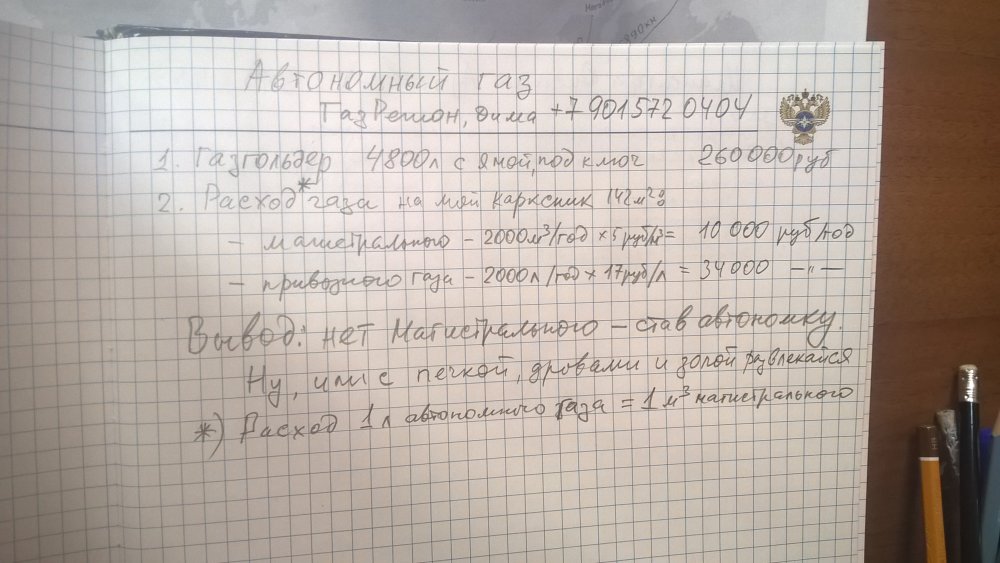 890км
Автономный газ
ГазРегион, Дима +7 901 572 0404
1. Газгольдер 4800л с ямой, под ключ 260 000 руб
2. Расход* газа на мой каркасник 142м²:
- магистрального - 2000м³/год × 5 руб/м³ = 10 000 руб/год
- привозного газа - 2000л/год × 17руб/л = 34 000 —"—
Вывод: нет магистрального - ставь автономку.
Ну, или с печкой, дровами и золой развлекайся
*) Расход 1 л автономного газа = 1 м³ магистрального